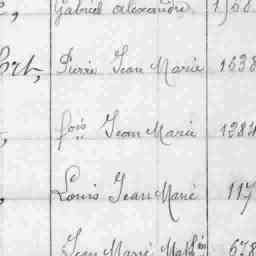 Gabriel Alexandre 1,68
Pierre Jean Marie 1638
fois Jean Marie 1284
Louis Jean Marie 117
Jean Marie Mathin 678